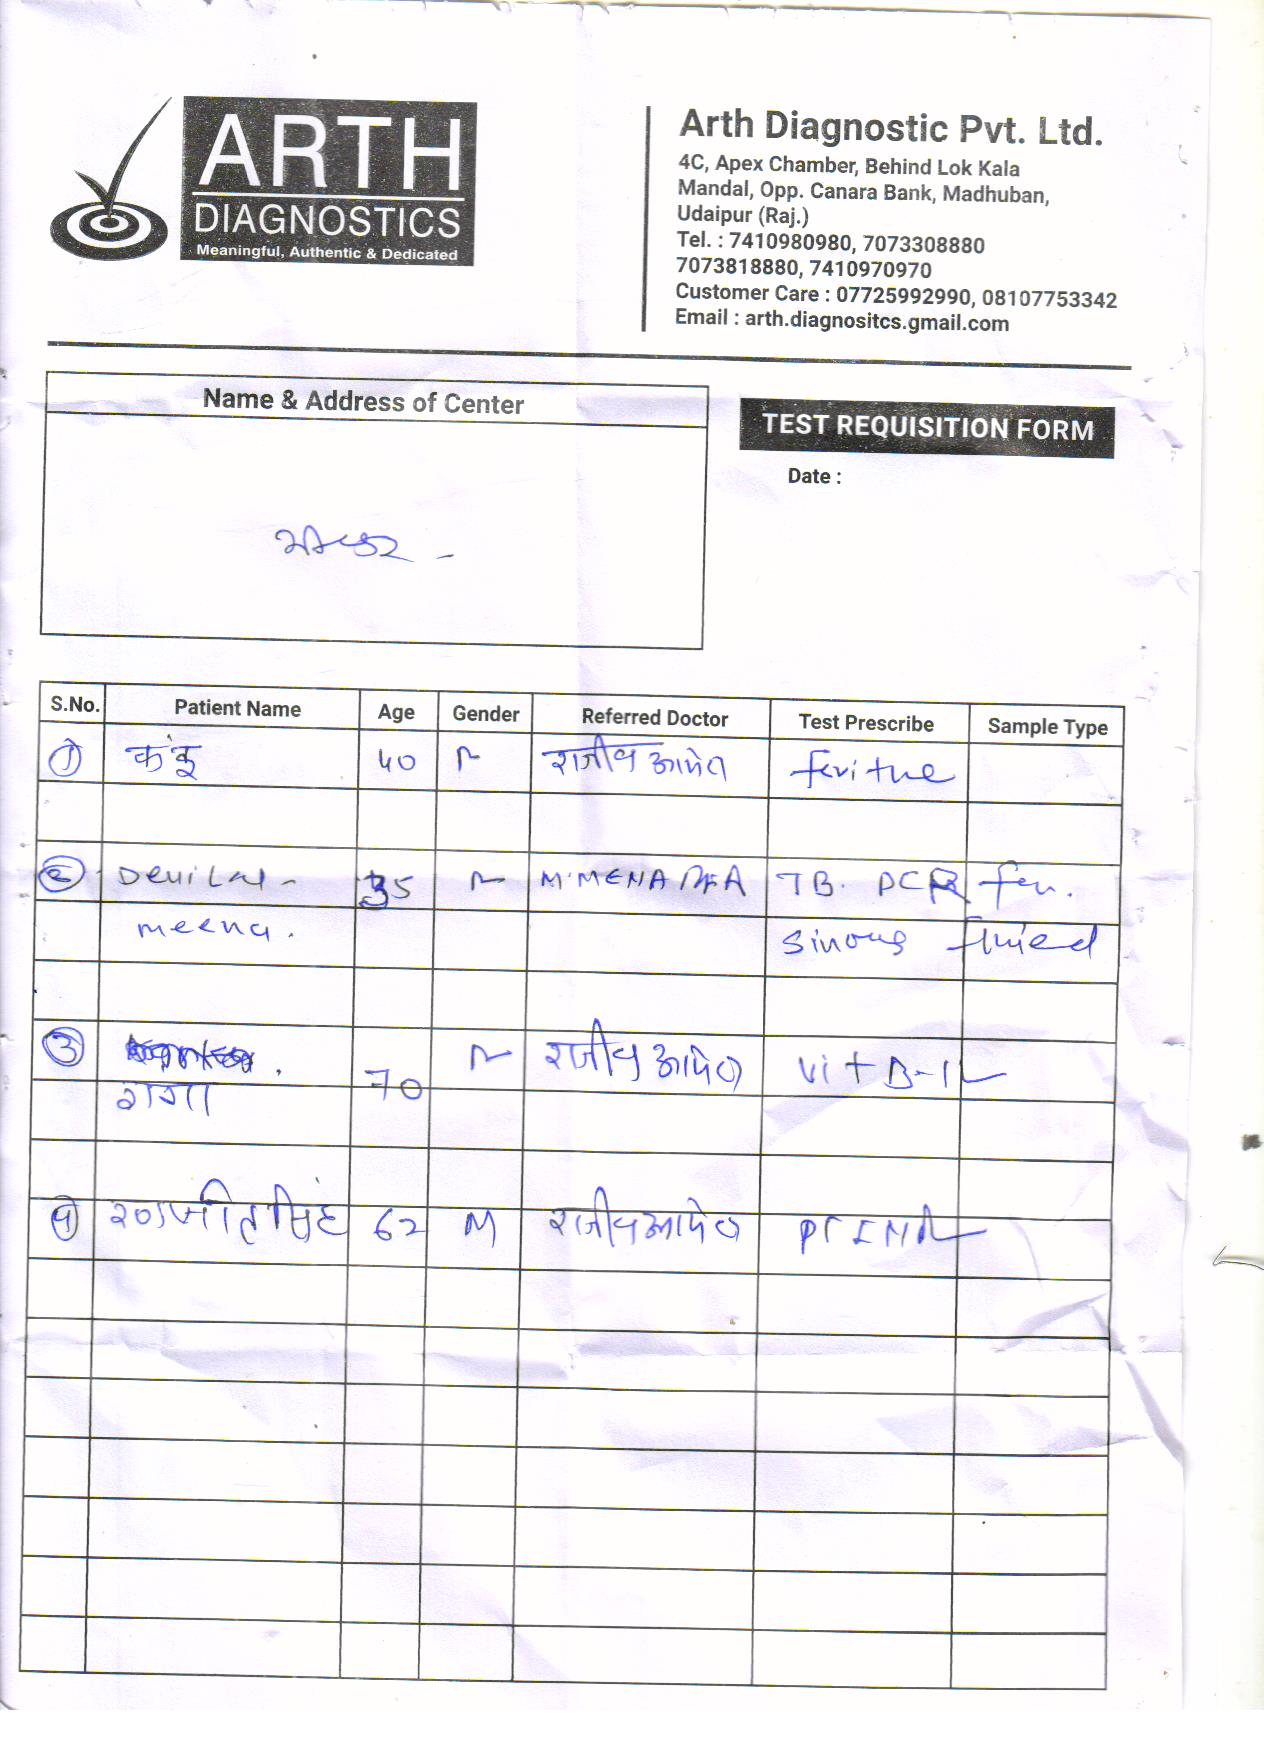 ARTH
DIAGNOSTICS
Meaningful, Authentic & Dedicated
Arth Diagnostic Pvt. Ltd.
4C, Apex Chamber, Behind Lok Kala
Mandal, Opp. Canara Bank, Madhuban,
Udaipur (Raj.)
Tel. : 7410980980, 7073308880
7073818880, 7410970970
Customer Care : 07725992990, 08107753342
Email : arth.diagnositcs.gmail.com
Name & Address of Center
TEST REQUISITION FORM
Date :
S.No. Patient Name Age Gender Referred Doctor Test Prescribe Sample Type
1 कंकू 40 राजीव आमेटा
2 Devilal 35 TB. PCR
meena.
3 राजीव आमेटा Vit B-12
गंगा 70
4 रणजीत सिंह 62 M राजीव आमेटा PT INR